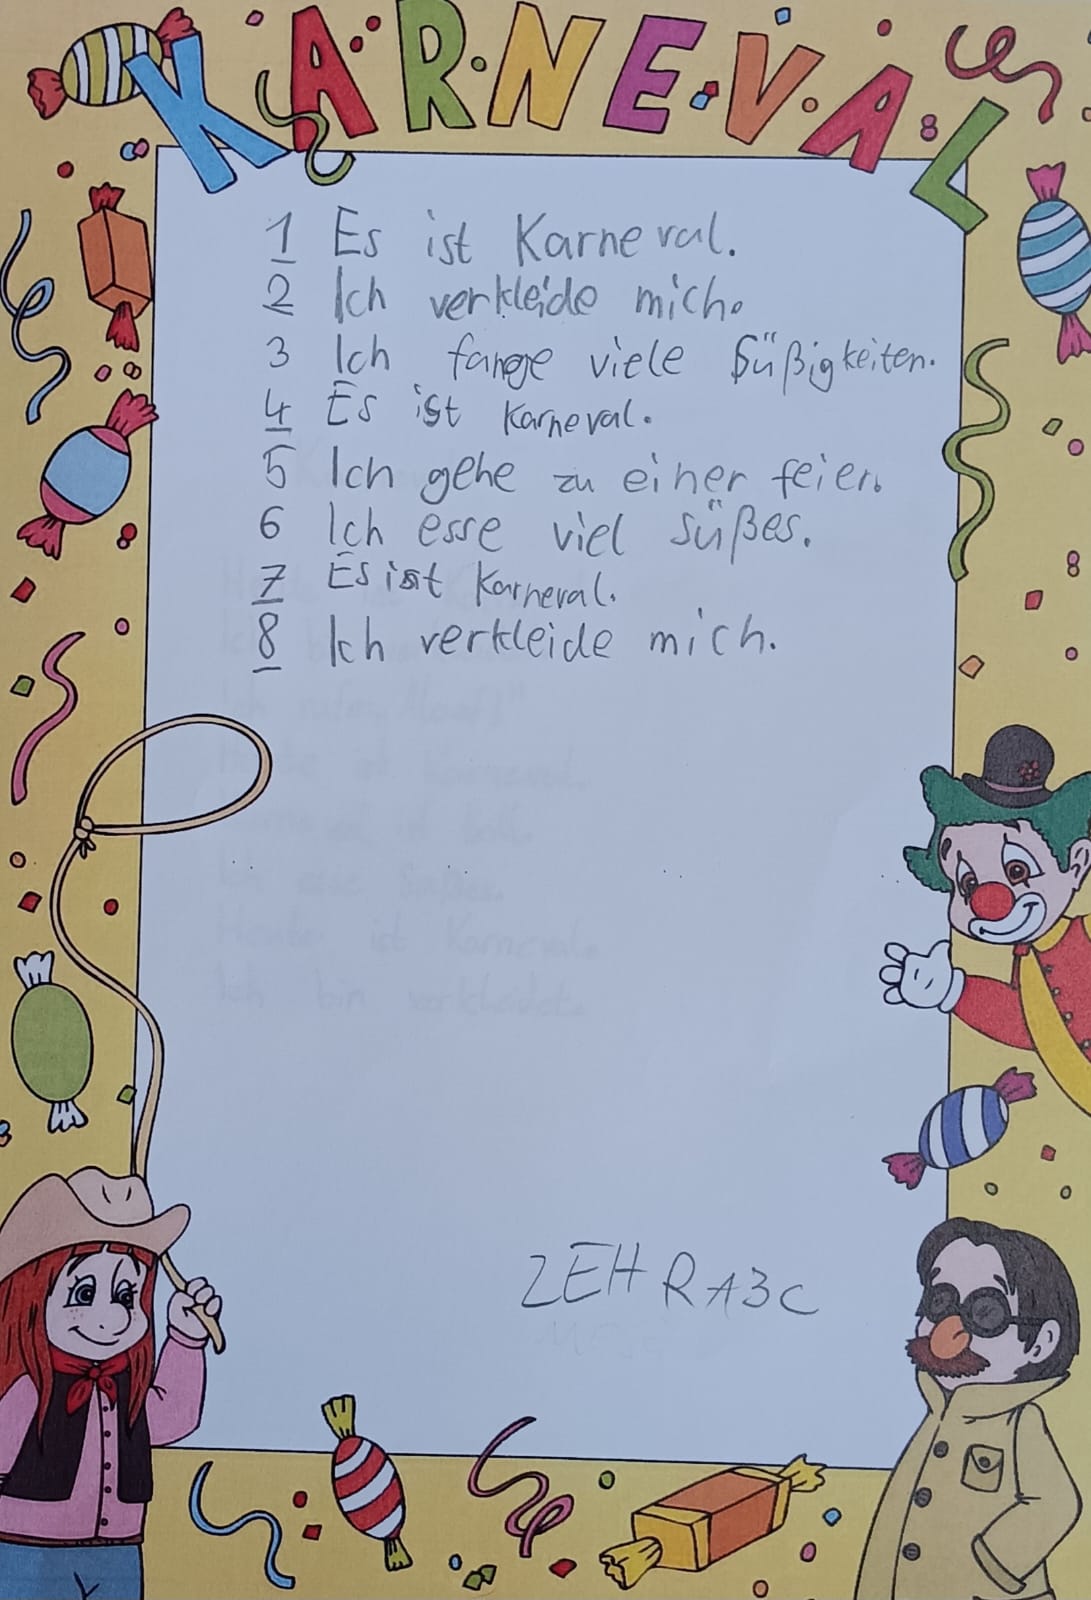 KARNEVAL
1 Es ist Karneval.
2 Ich verkleide mich.
3 Ich fange viele Süßigkeiten.
4 Es ist Karneval.
5 Ich gehe zu einer feier.
6 Ich esse viel süßes.
7 Es ist Karneval.
8 Ich verkleide mich.
ZEHRA3C